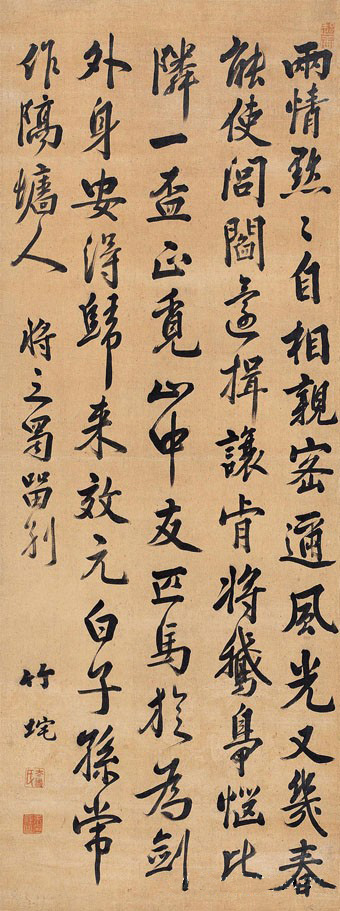 兩情默〻自相親密邇風光又幾春
能使閭閻還揖讓肯將鵝鳧惱比
隣一盃正覓山中友匹馬旋為劍
外身安得歸来效元白子孫常
作隔墻人 將之蜀留別 竹垞